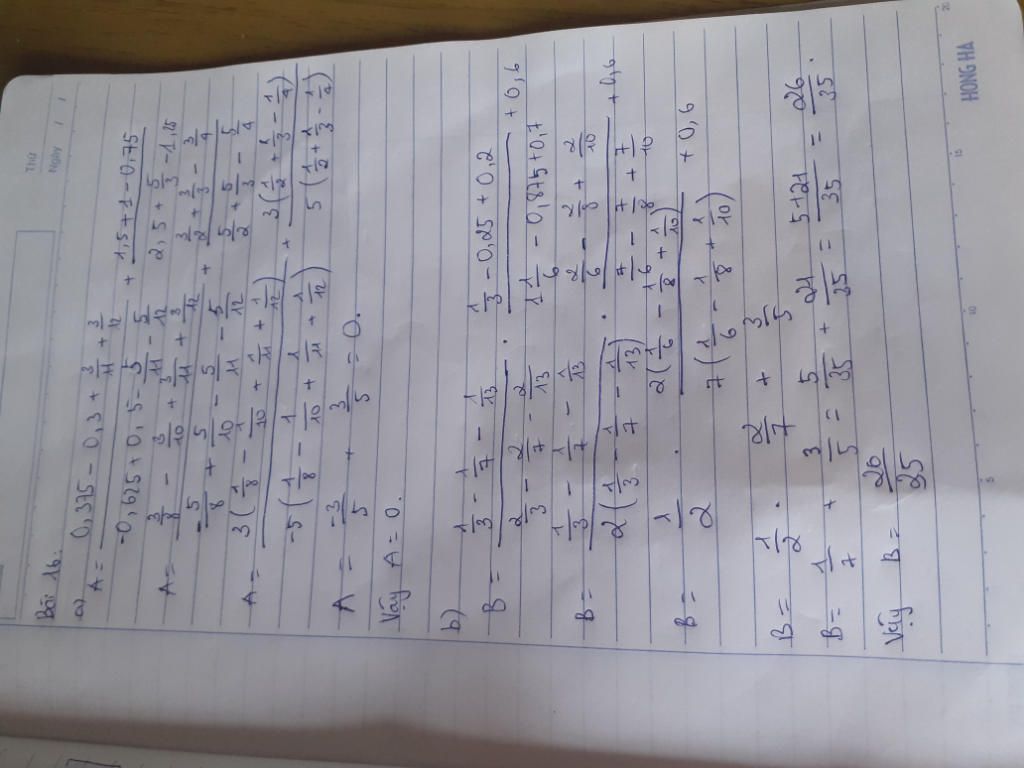 Thứ
Ngày
Bài 16:
a) A = (0,375 - 0,3 + 3/11 + 3/12)/(-0,625 + 0,5 - 5/11 - 5/12) + (1,5 + 1 - 0,75)/(2,5 + 5/3 - 1,25)
A = (3/8 - 3/10 + 3/11 + 3/12)/(-5/8 + 5/10 - 5/11 - 5/12) + (3/2 + 3/3 - 3/4)/(5/2 + 5/3 - 5/4)
A = 3(1/8 - 1/10 + 1/11 + 1/12)/-5(1/8 - 1/10 + 1/11 + 1/12) + 3(1/2 + 1/3 - 1/4)/5(1/2 + 1/3 - 1/4)
A = -3/5 + 3/5 = 0.
Vậy A = 0.
b)
B = (1/3 - 1/7 - 1/13)/(2/3 - 2/7 - 2/13) . (1/3 - 0,25 + 0,2)/(1 1/6 - 0,875 + 0,7) + 0,6
B = (1/3 - 1/7 - 1/13)/2(1/3 - 1/7 - 1/13) . (2/6 - 2/8 + 2/10)/(7/6 - 7/8 + 7/10) + 0,6
B = 1/2 . 2(1/6 - 1/8 + 1/10)/7(1/6 - 1/8 + 1/10) + 0,6
B = 1/2 . 2/7 + 3/5
B = 1/7 + 3/5 = 5/35 + 21/35 = 5+21/35 = 26/35.
Vậy B = 26/35
HONG HA